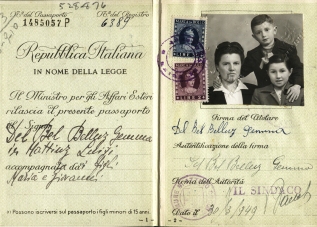 528476
N.° del Passaporto N.° del Registro
1485057.P 6587
Repubblica Italiana
IN NOME DELLA LEGGE
Il Ministro per gli Affari Esteri
rilascia il presente passaporto
al Signor
Del Bel Belluz Gemma
in Mattiuz Luigi
accompagnata da figli
Maria e Giovanni
In Possono iscriversi sul passaporto i figli minori di 15 anni.
- 1 -
LIRE
LIRE
Firma del Titolare
Del Bel Belluz Gemma
Autentificazione della firma
Del Bel Belluz Gemma
Firma dell'Autorità
IL SINDACO
Data il
- 2 -